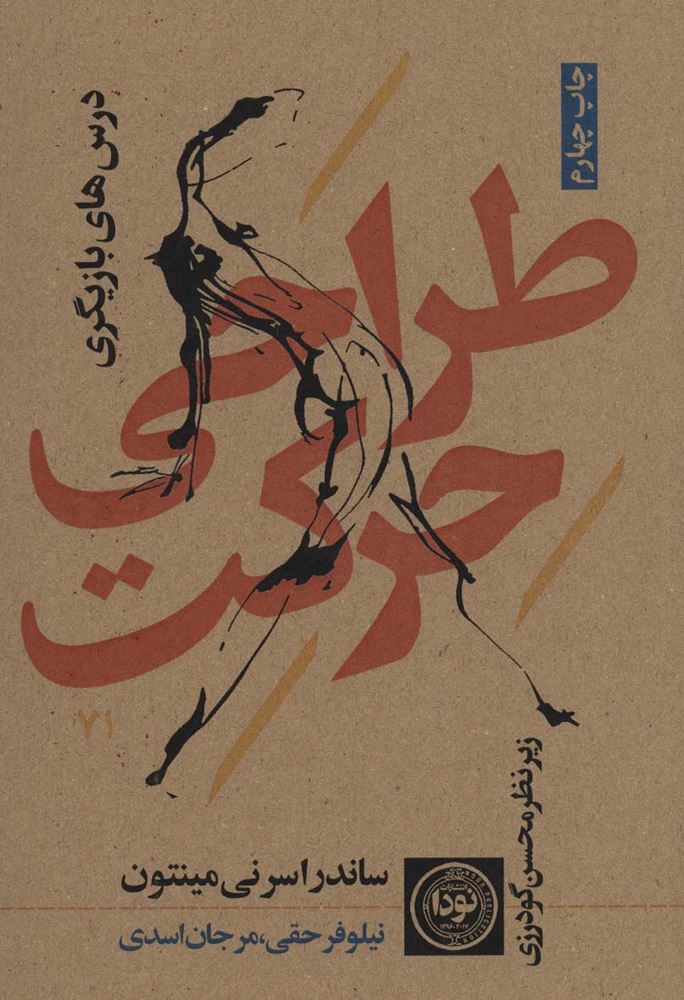 چاپ چهارم
درس های بازیگری
طراحی
حرکت
۷۱
زیر نظر محسن گودرزی
ساندرا سرنی مینتون
نیلوفر حقی، مرجان اسدی
انتشارات
نودا
۱۳۹۶-۲۰۱۷